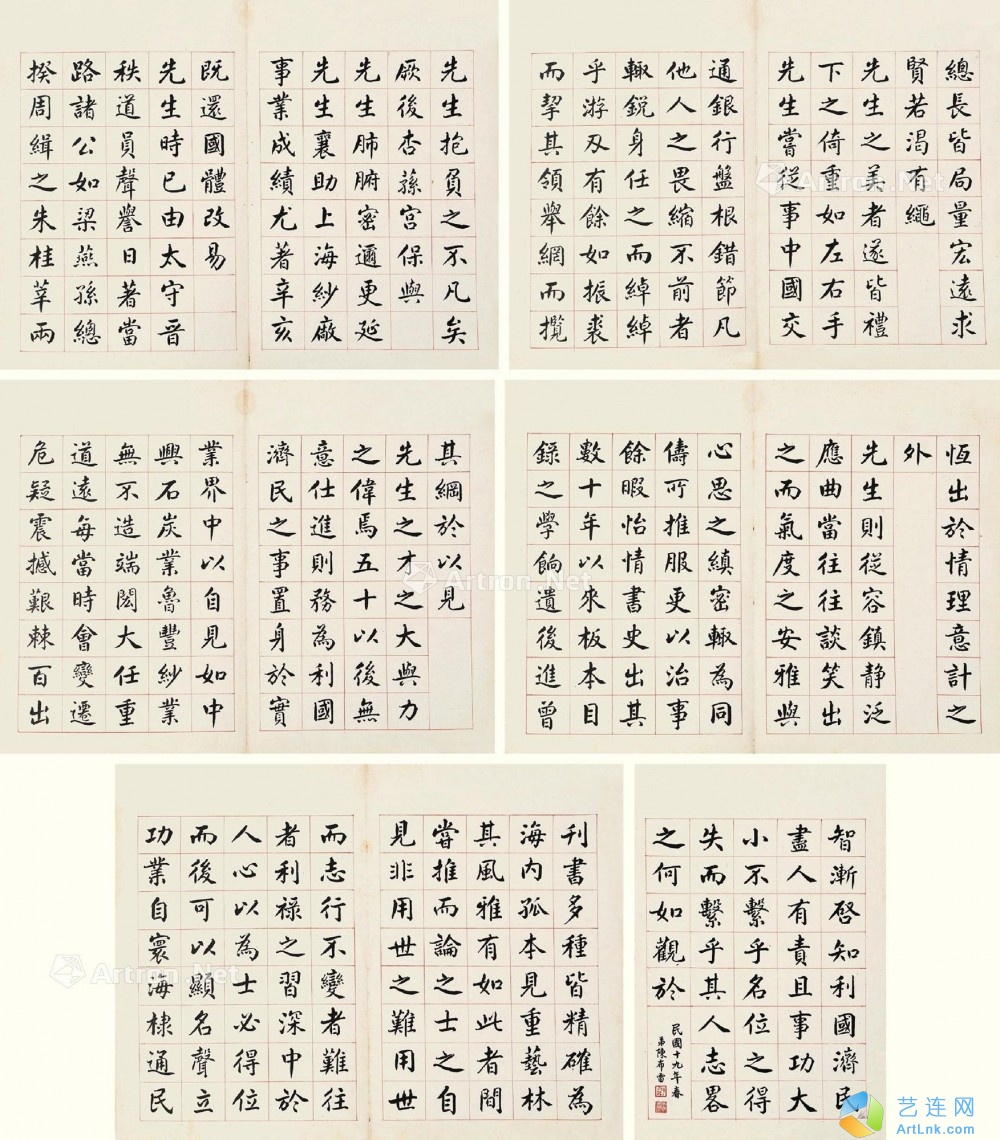 先生抱負之不凡矣
厥後杏蓀宮保與
先生肺腑密邇更延
先生襄助上海紗廠
事業成績尤著辛亥
既還國體改易
先生時已由太守晉
秩道員聲譽日著當
路諸公如梁燕孫總
揆周緝之朱桂莘兩
總長皆局量宏遠求
賢若渴有繩
先生之美者遂皆禮
下之倚重如左右手
先生嘗從事中國交
通銀行盤根錯節凡
他人之畏縮不前者
輒鋭身任之而綽綽
乎游刃有餘如振裘
而挈其領舉網而攬
其綱於以見
先生之才之大與力
之偉焉五十以後無
意仕進則務為利國
濟民之事置身於實
業界中以自見如中
興石炭業魯豐紗業
無不造端閎大任重
道遠每當時會變遷
危疑震撼艱棘百出
恆出於情理意計之
外
先生則從容鎮静泛
應曲當往往談笑出
之而氣度之安雅與
心思之縝密輒為同
儔所推服更以治事
餘暇怡情書史出其
數十年以來板本目
錄之學餉遺後進曾
刊書多種皆精確為
海内孤本見重藝林
其風雅有如此者間
嘗推而論之士之自
見非用世之難用世
而志行不變者難往
者利禄之習深中於
人心以為士必得位
而後可以顯名聲立
功業自寰海棣通民
智漸啓知利國濟民
盡人有責且事功大
小不繫乎名位之得
失而繫乎其人志畧
之何如觀於
民國十九年春
弟陳布雷
Artron.Net
Artron.Net
Artron.Net
艺连网
ArtLnk.com